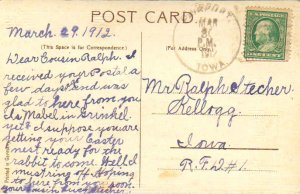 POST CARD
March. 29. 1912.
(This Space is for Correspondence)
(For Address Only)
MAR
IOWA
Dear Cousin Ralph. I
received your Postal a
few days and was
glad to here from you
Is Mabel in Grinnel
yet I suppose you are
getting your Easter
nest ready for the
rabbit to come. Well I
must ring off hoping
to here from you soon.
your cousin
Mr. Ralph Stecher.
Kellogg.
Iowa.
R.F.D.#1.